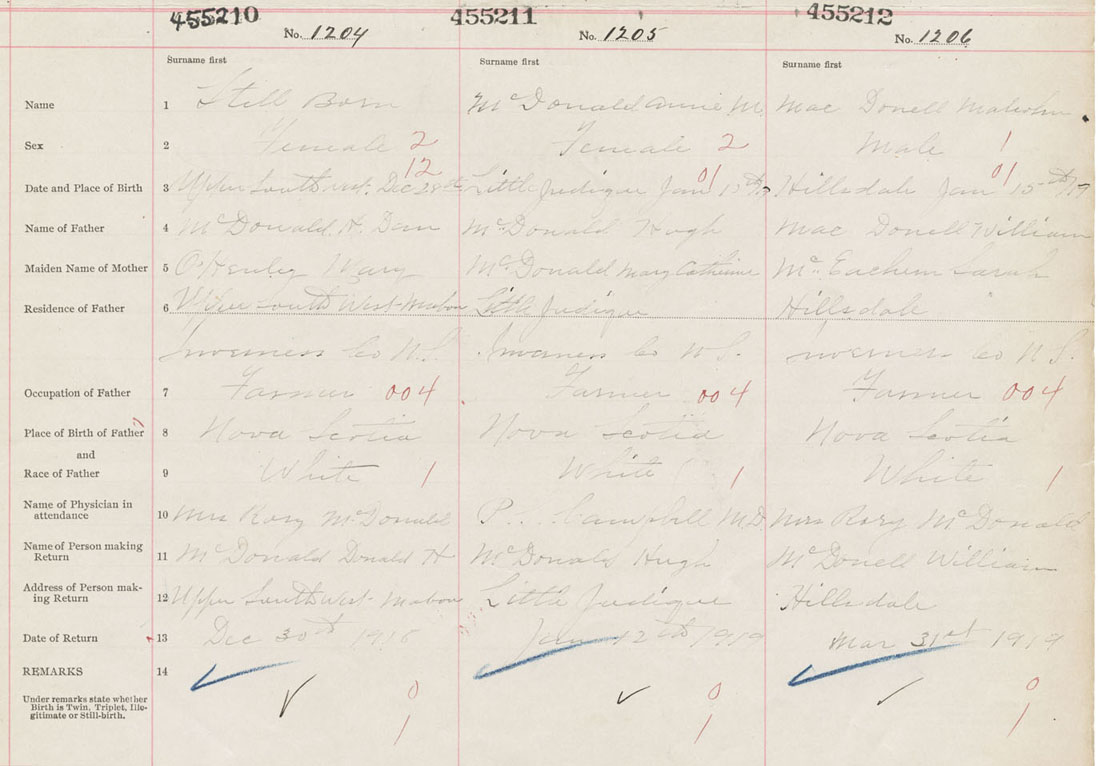 455210 455211 455212
No. 1204 No. 1205 No. 1206
Surname first Surname first Surname first
Name 1 Still Born McDonald Annie M. Mac Donell Malcolm
Sex 2 Female 2 Female 2 Male 1
12 01 01
Date and Place of Birth 3 Upper Southwest Dec 28th Little Judique Jan Hillsdale Jan
Name of Father 4 McDonald H. Dan McDonald Hugh Mac Donell William
Maiden Name of Mother 5 O'Henley Mary McDonald Mary Catherine McEachern Sarah
Residence of Father 6 Upper South West Mabou Little Judique Hillsdale
Inverness Co N.S. Inverness Co N.S. Inverness Co N.S.
Occupation of Father 7 Farmer 004 Farmer 004 Farmer 004
Place of Birth of Father 8 Nova Scotia Nova Scotia Nova Scotia
and
Race of Father 9 White 1 White 1 White 1
Name of Physician in
attendance 10 Mrs Rory McDonald P. Campbell M.D Mrs Rory McDonald
Name of Person making
Return 11 McDonald Donald H McDonald Hugh McDonell William
Address of Person mak-
ing Return 12 Upper South West Mabou Little Judique Hillsdale
Date of Return 13 Dec 30th 1918 12th 1919 Mar 31st 1919
REMARKS 14
Under remarks state whether
Birth is Twin, Triplet, Ille-
gitimate or Still-birth.
0 0 0
1 1 1